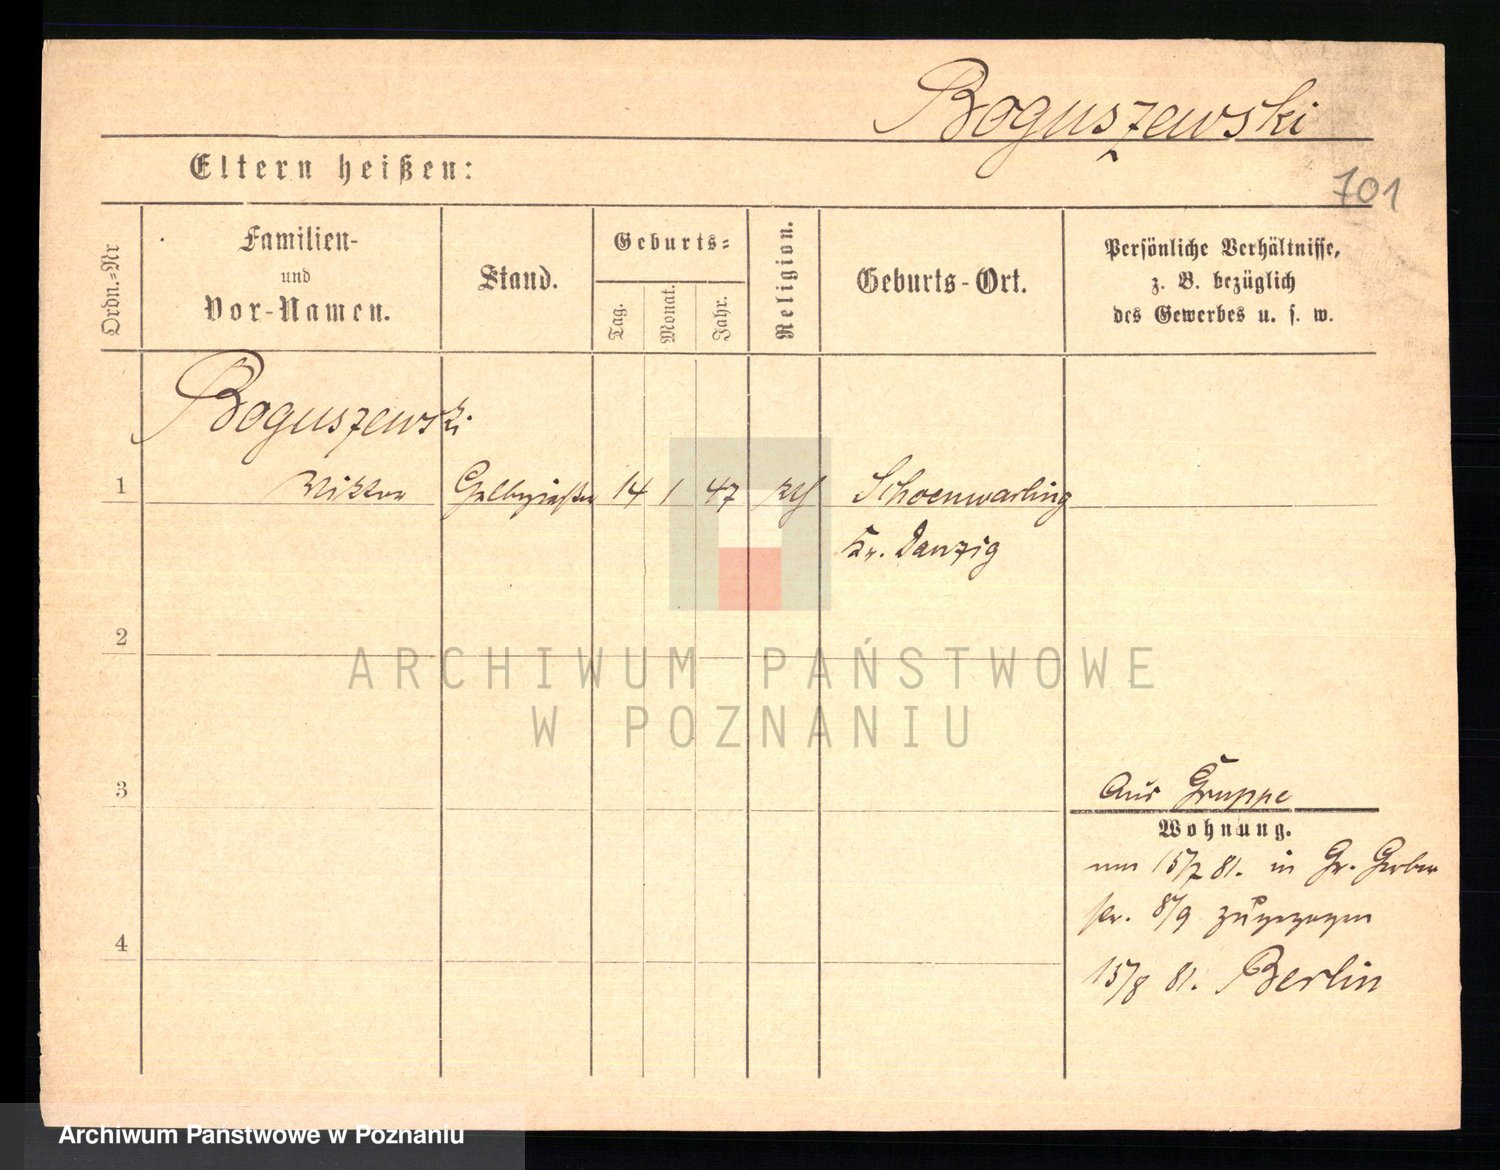 Boguszewski
701
Eltern heißen:
Ordn.=Nr
Familien-
und
Vor-Namen.
Stand.
Geburts=
Tag.
Monat.
Jahr.
Religion.
Geburts-Ort.
Persönliche Verhältnisse,
z. B. bezüglich
des Gewerbes u. s. w.
Boguszewski
1 Viktor Gelbgießer 14 1 47 Schoenwarling
Kr. Danzig
2
ARCHIWUM PAŃSTWOWE
W POZNANIU
3
Aus Gruppe
Wohnung.
15/7 81. in Gr. Gerber
8/9 zugezogen
4
15/8 81. Berlin
Archiwum Państwowe w Poznaniu